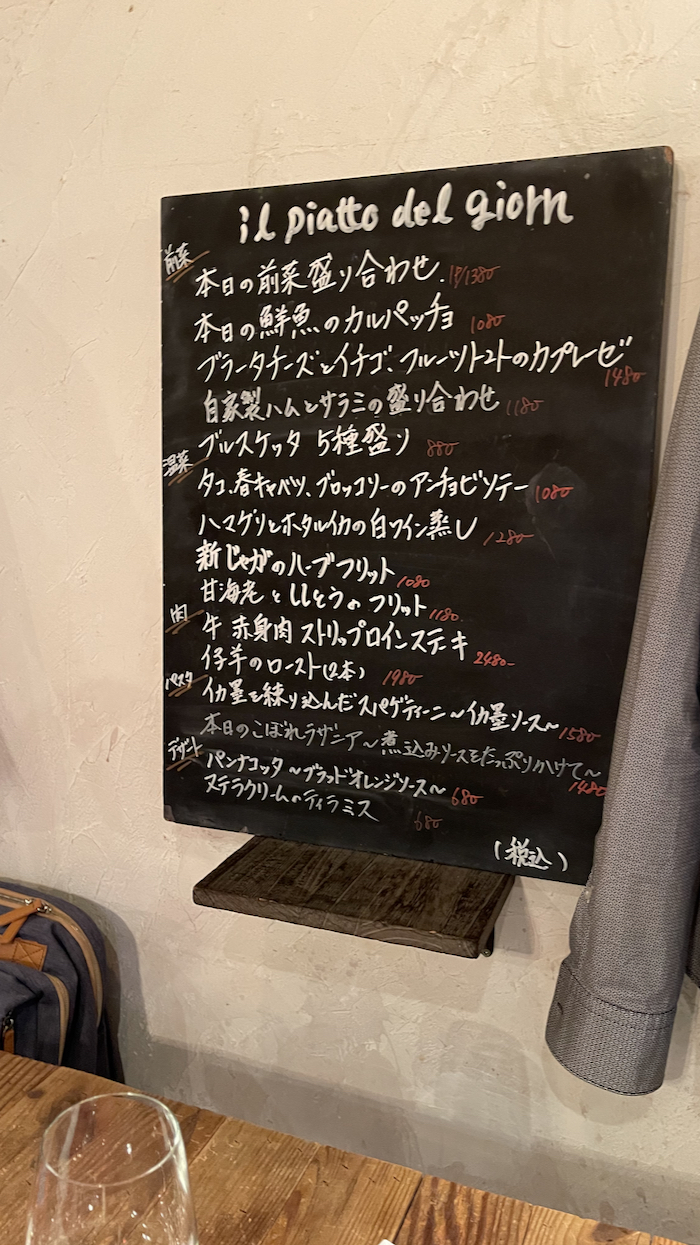 il piatto del giorn
前菜
本日の前菜盛り合わせ. 1P/1380
本日の鮮魚のカルパッチョ 1080-
ブラータチーズとイチゴ、フルーツトマトのカプレーゼ 1480-
自家製ハムとサラミの盛り合わせ 1180-
ブルスケッタ 5種盛り 880-
温菜
タコ、春キャベツ、ブロッコリーのアンチョビソテー 1080-
ハマグリとホタルイカの白ワイン蒸し 1280-
新じゃがのハーブフリット 1080
甘海老とししとうのフリット 1180-
肉
牛 赤身肉 ストリップロインステーキ 2480-
仔羊のロースト(2本) 1980-
パスタ
イカ墨を練り込んだスパゲティーニ〜イカ墨ソース〜 1580
本日のこぼれラザニア〜煮込みソースをたっぷりかけて〜 1480
デザート
パンナコッタ〜ブラッドオレンジソース〜 680
ステラクリームのティラミス 680
(税込)